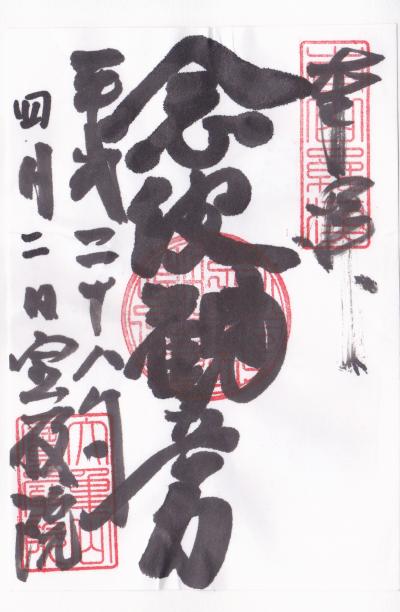 奉拝
念彼観音力
平成二十八年
四月二日